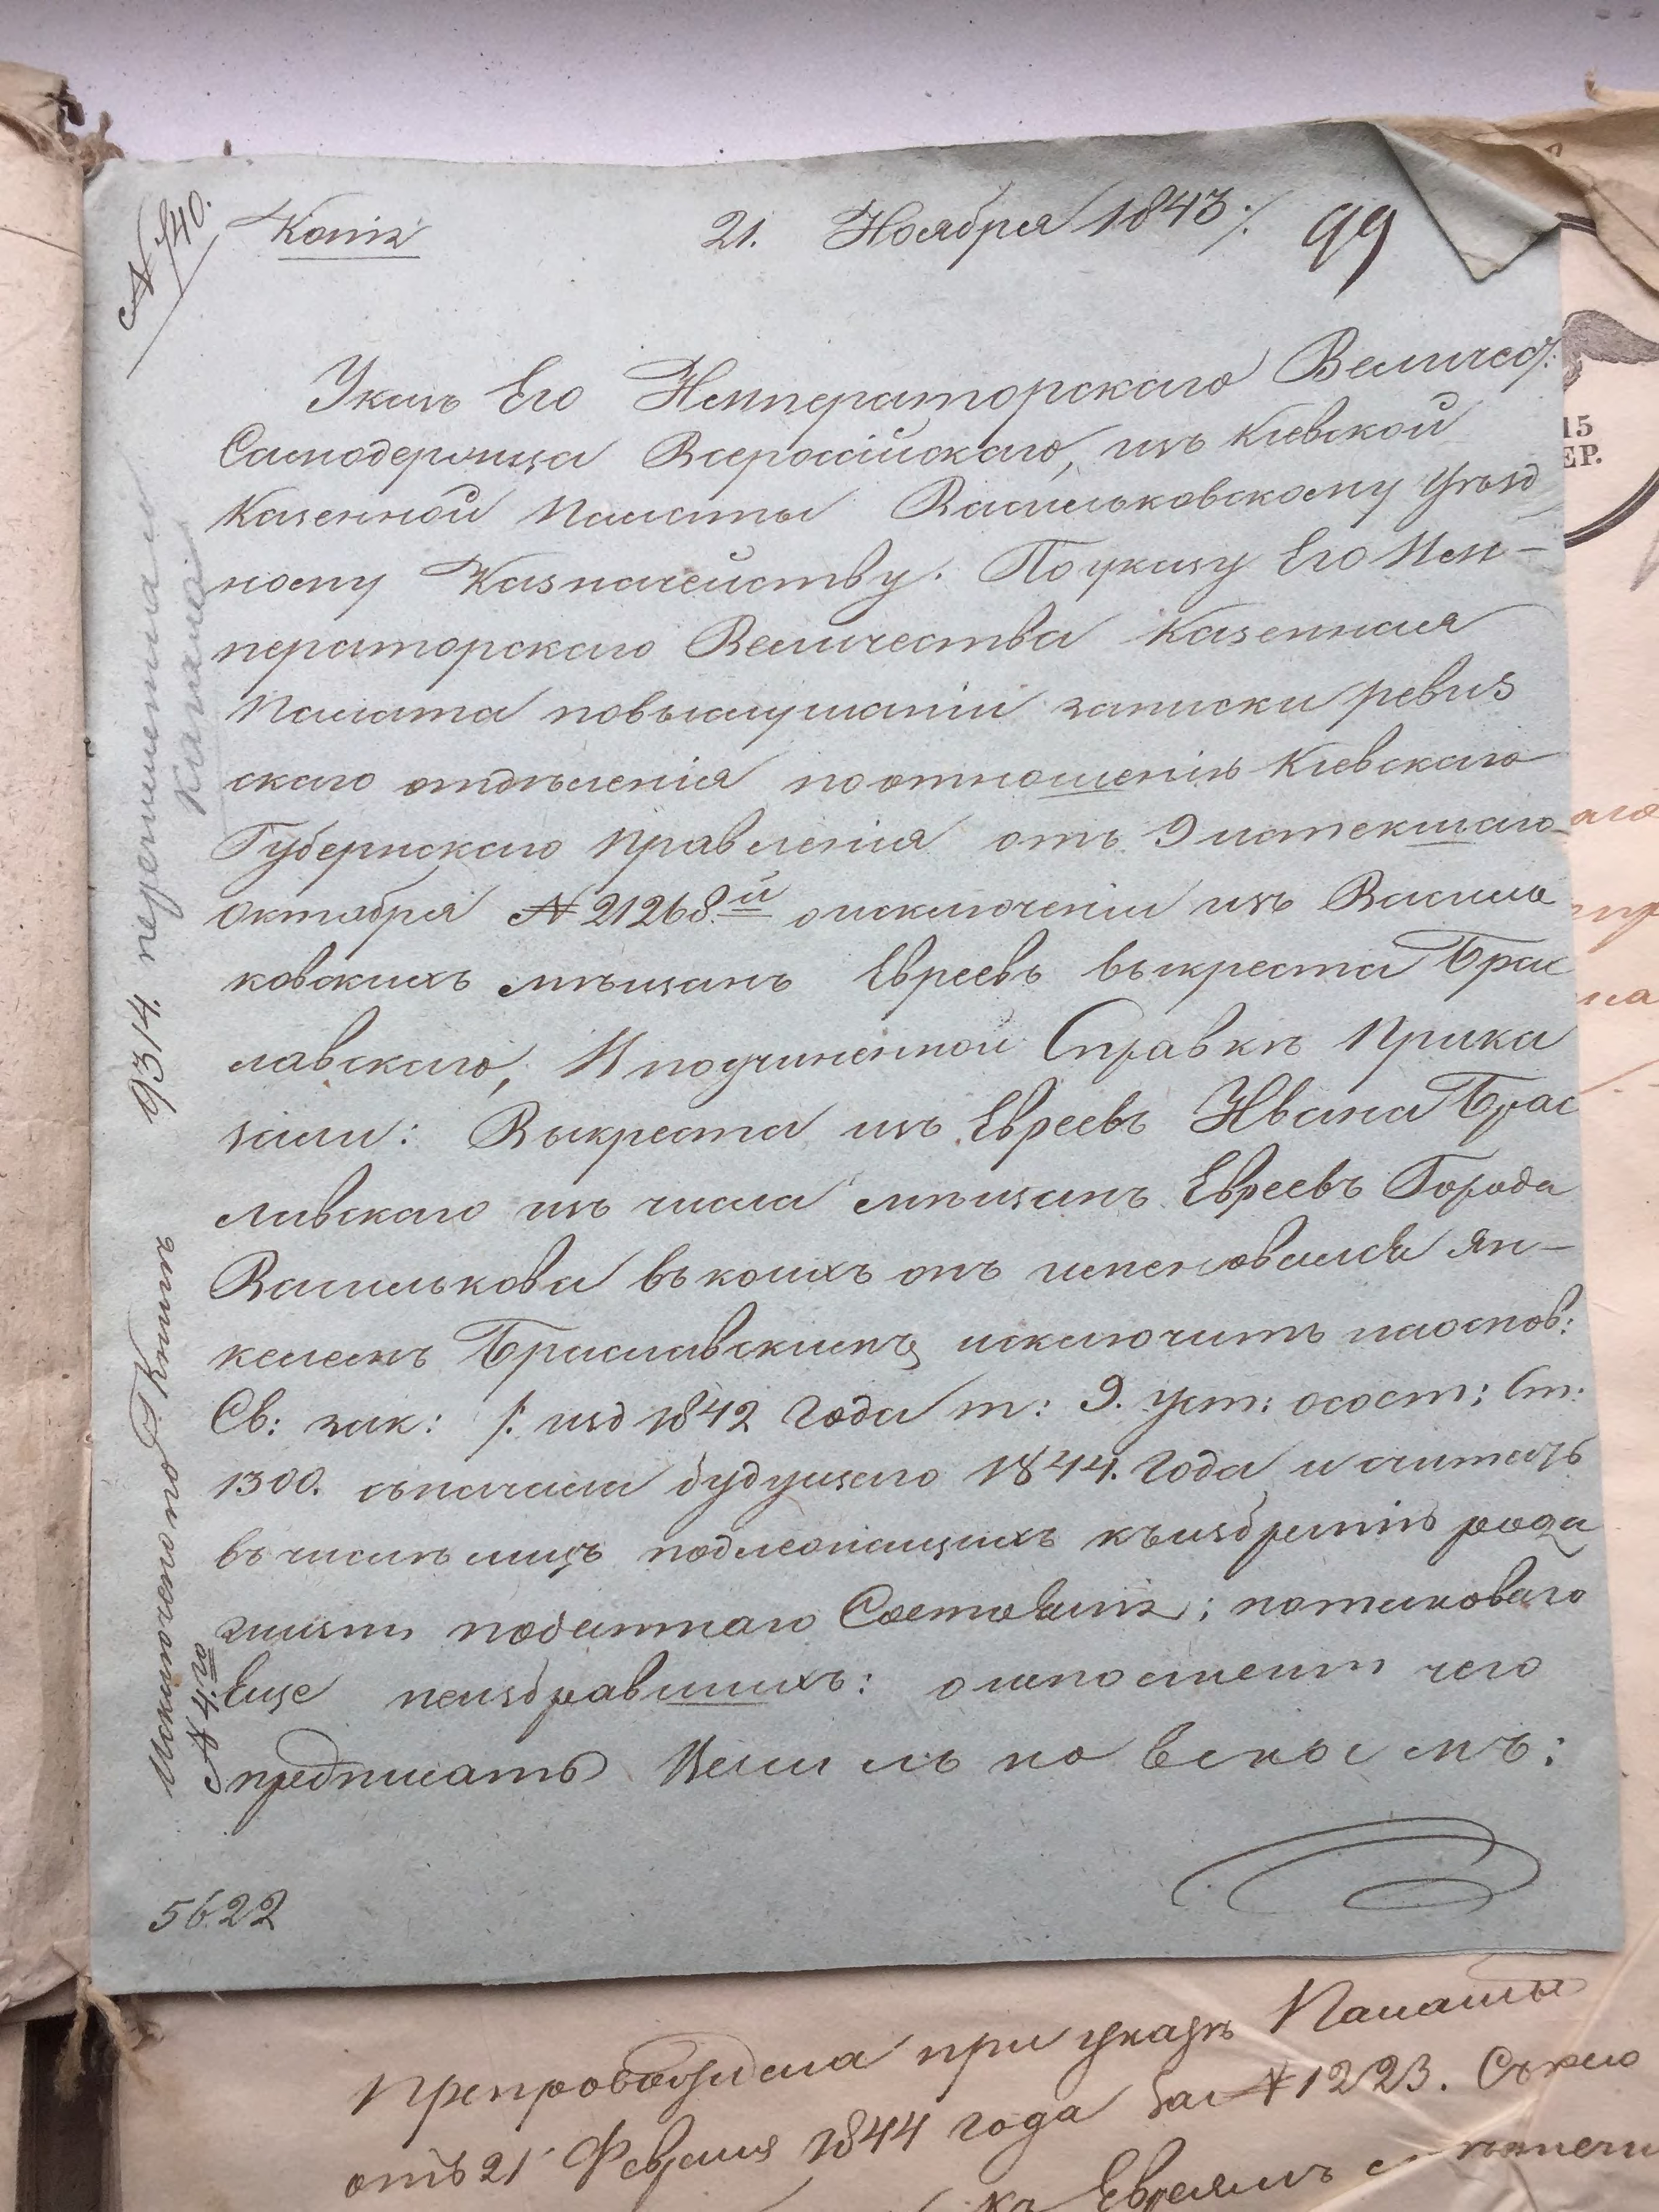 № 740.
Копія
21. Ноября 1843 /.
99
Указъ Его Императорскаго Величес:
Самодержца Всероссійскаго, изъ Кіевской
Казенной Палаты Васильковскому Уѣзд
ному Казначейству. По указу Его Им-
ператорскаго Величества Казенная
Палата повыслушаніи записки ревиз
скаго отдѣленія поотношенію Кіевскаго
Губернскаго правленія отъ 9 истекшаго
Октября № 21268.й оисключеніи изъ Василь
ковскихъ мѣщанъ Евреевъ выкреста Брас
лавскаго, И поучиненной Справкѣ Прика
зали: Выкреста изъ Евреевъ Ивана Брас
лавскаго изъ числа мѣщанъ Евреевъ Города
Василькова въ коихъ онъ именовался Ян-
келемъ Браславскимъ исключить наоснов:
Св: зак: /: изд 1842 года т: 9. уст: осост: Ст:
1300. съначала будущаго 1844. года и считать
въ числѣ лицъ подлежащихъ къизбранію рода
жизни податнаго Состоянія; потаковаго
Еще неизбравшихъ: о
чего
предписать
5622
9314. перешенная
Исключено по Книгѣ
№ 4.го
Препровождена при указѣ Палаты
отъ 21 Февраля 1844 года за № 1223.
къ Евреямъ
15
ЕР.